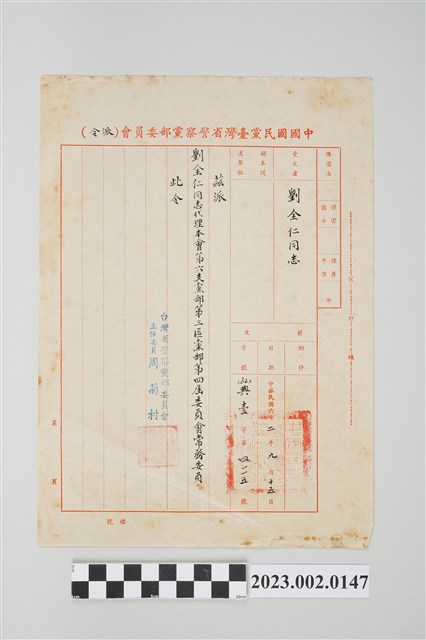 中國國民黨臺灣省警察黨部委員會（派令）
受文者
劉全仁同志
發文
日期
中華民國六十二年九月十五日
字號
興壹字第四一一五號
茲派
劉全仁同志代理本會第六支黨部第三區黨部第四屆委員會常務委員
此令
台灣省警察黨部委員會
主任委員 周菊村
檔號
第 頁
2023.002.0147